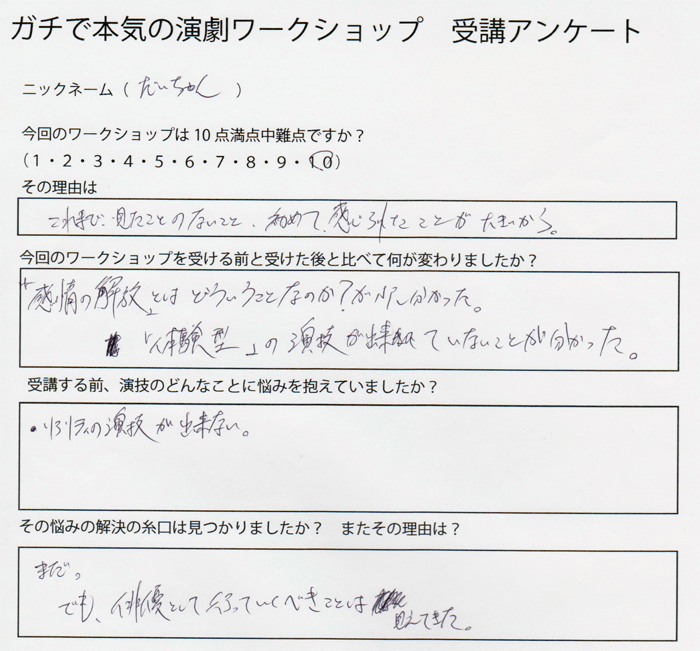 ガチで本気の演劇ワークショップ　受講アンケート
ニックネーム（ だいちゃん ）
今回のワークショップは10点満点中難点ですか？
（1・2・3・4・5・6・7・8・9・10）
その理由は
これまで、見たことのないこと、初めて、感じられたことが大きいから。
今回のワークショップを受ける前と受けた後と比べて何が変わりましたか？
「感情の解放」とはどういうことなのか？が少し分かった。
「体験型」の演技が出来ていないことが分かった。
受講する前、演技のどんなことに悩みを抱えていましたか？
・リアリティの演技が出来ない。
その悩みの解決の糸口は見つかりましたか？　またその理由は？
まだっ
でも、俳優として行っていくべきことは見えてきた。